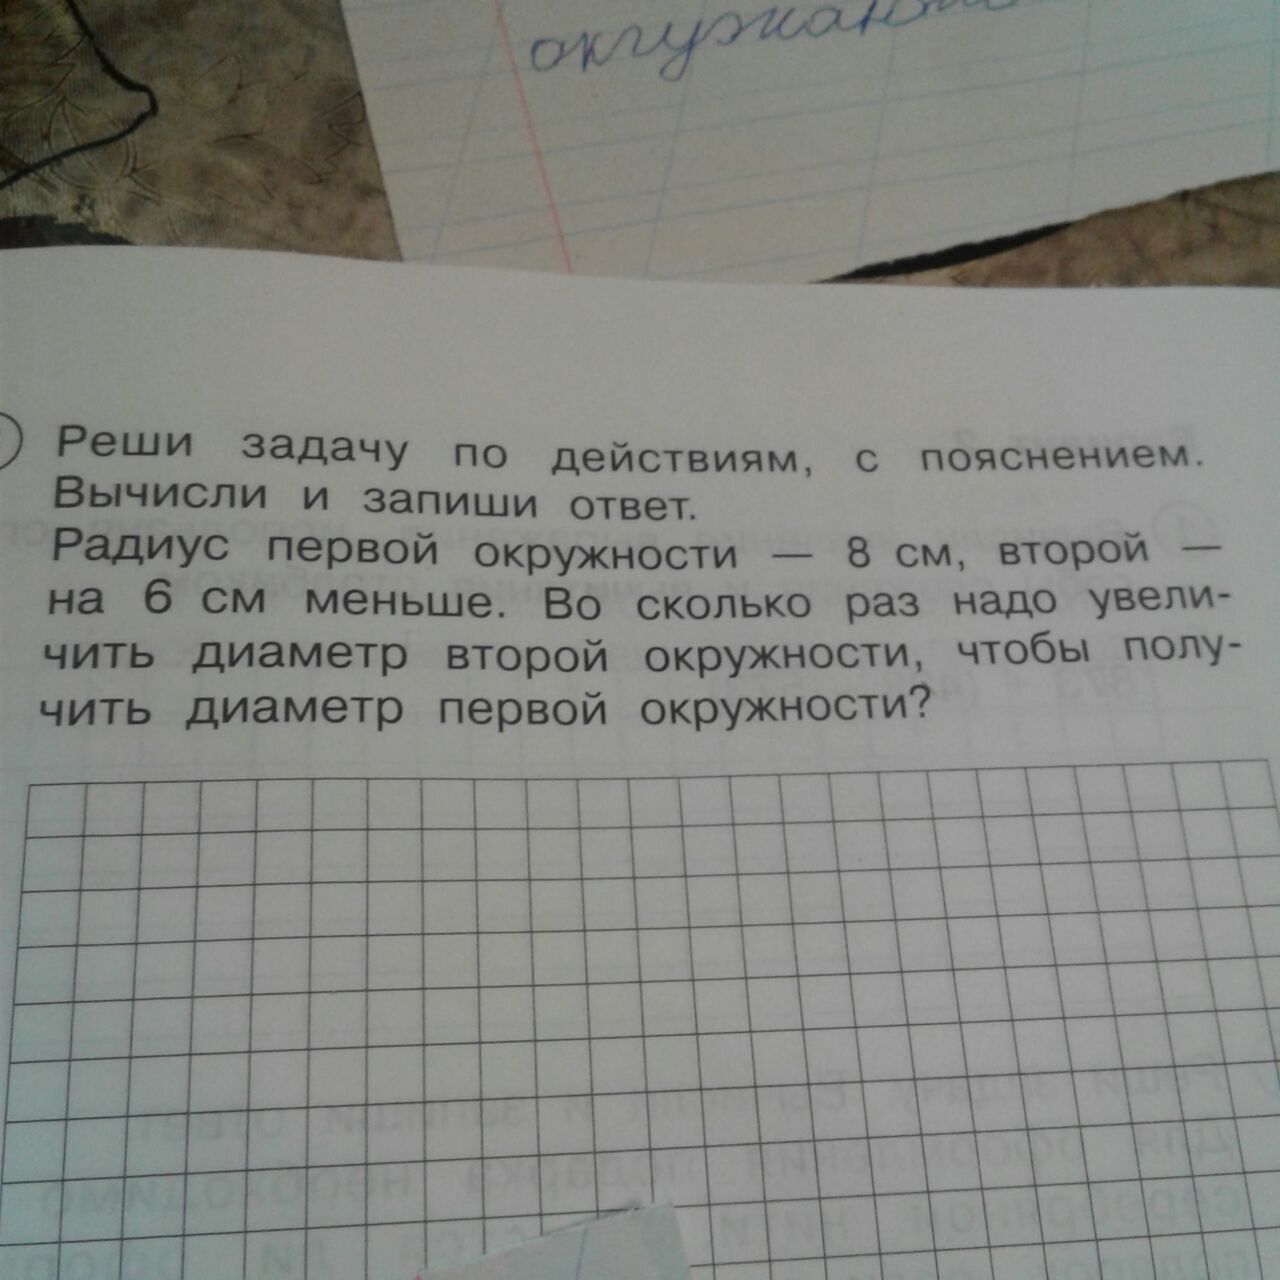 Реши задачу по действиям, с пояснением.
Вычисли и запиши ответ.
Радиус первой окружности — 8 см, второй —
на 6 см меньше. Во сколько раз надо увели-
чить диаметр второй окружности, чтобы полу-
чить диаметр первой окружности?